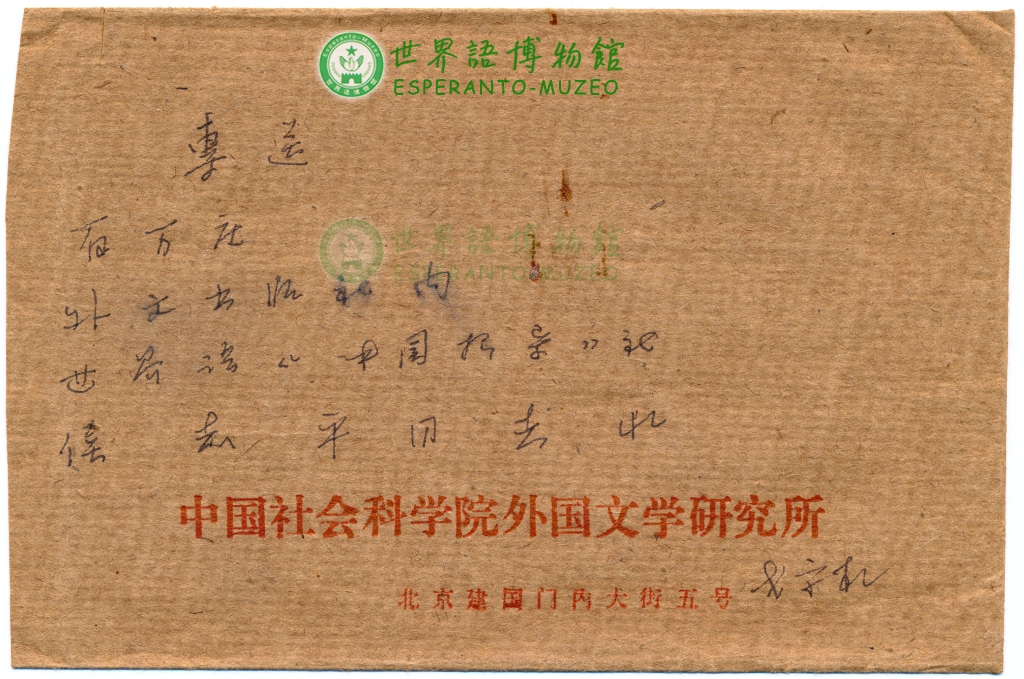 世界語博物館
ESPERANTO-MUZEO
專送
百万庄
世界語博物館
ESPERANTO-MUZEO
外文出版社内
世界语《中国报导》社
侯志平同志收
中国社会科学院外国文学研究所
北京建国门内大街五号 戈宝权